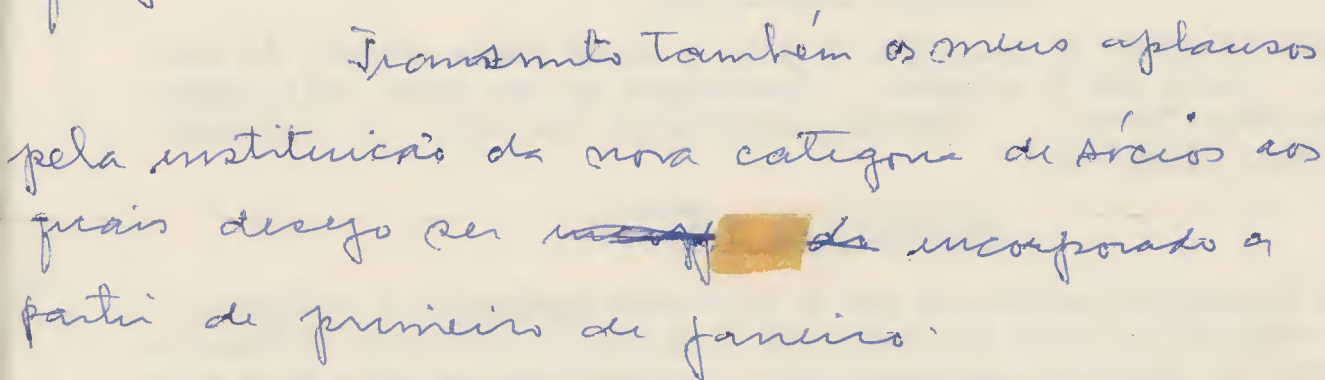 Transmito Também os meus aplausos
pela instituicão da nova categoria de sócios aos
quais desejo ser incorporado a
partir de primeiro de janeiro.